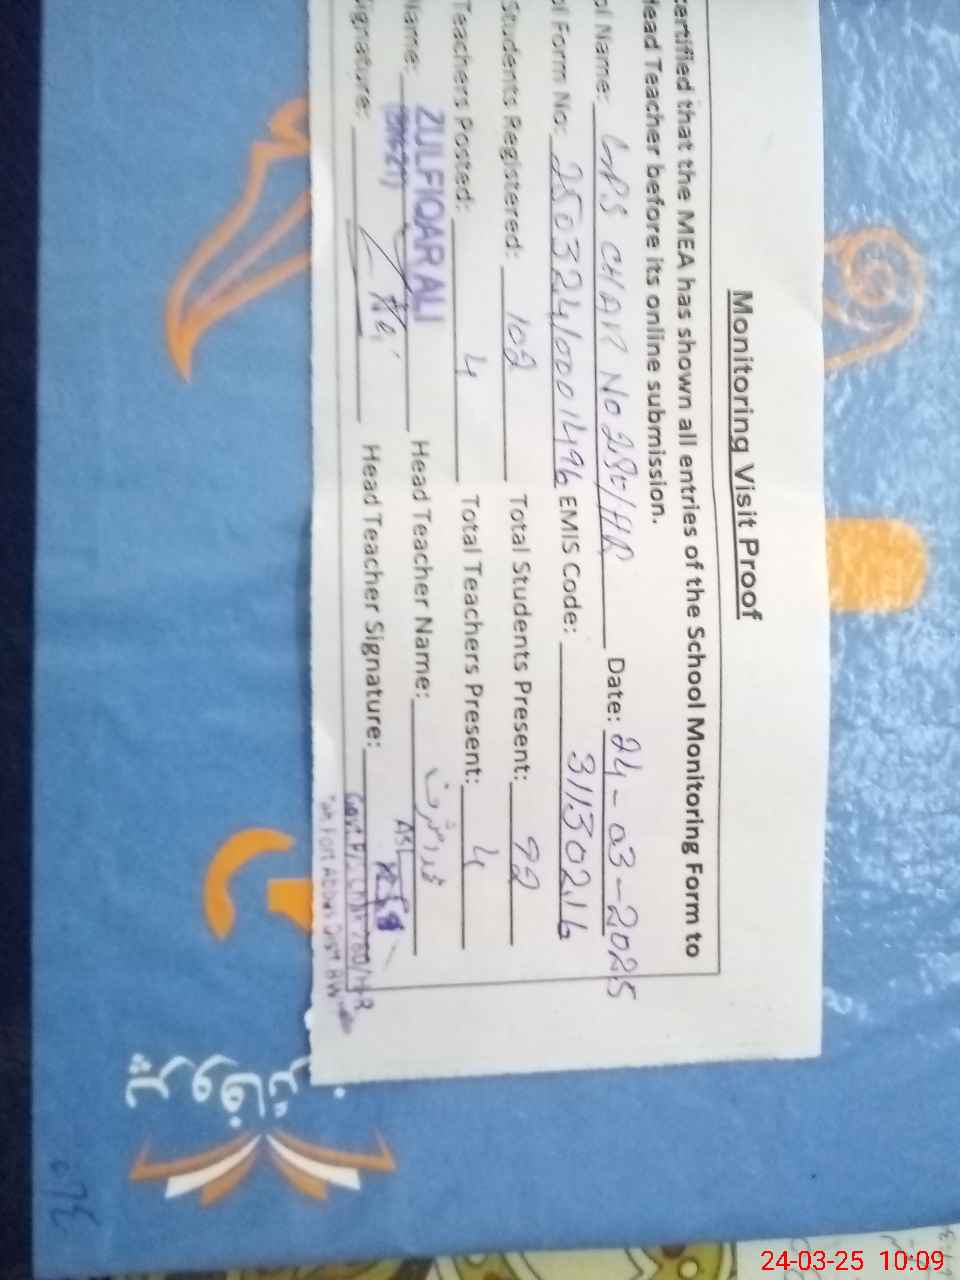 Monitoring Visit Proof
ertified that the MEA has shown all entries of the School Monitoring Form to
Head Teacher before its online submission.
ol Name: GPS CHAK No 280/HR Date: 24-03-2025
ol Form No: 25032410001496 EMIS Code: 31130216
Students Registered: 102 Total Students Present: 92
Teachers Posted: 4 Total Teachers Present: 4
Name: ZULFIQAR ALI Head Teacher Name:
Signature: Head Teacher Signature:
280/H-R
Fort Abbas Distt BWN
24-03-25 10:09